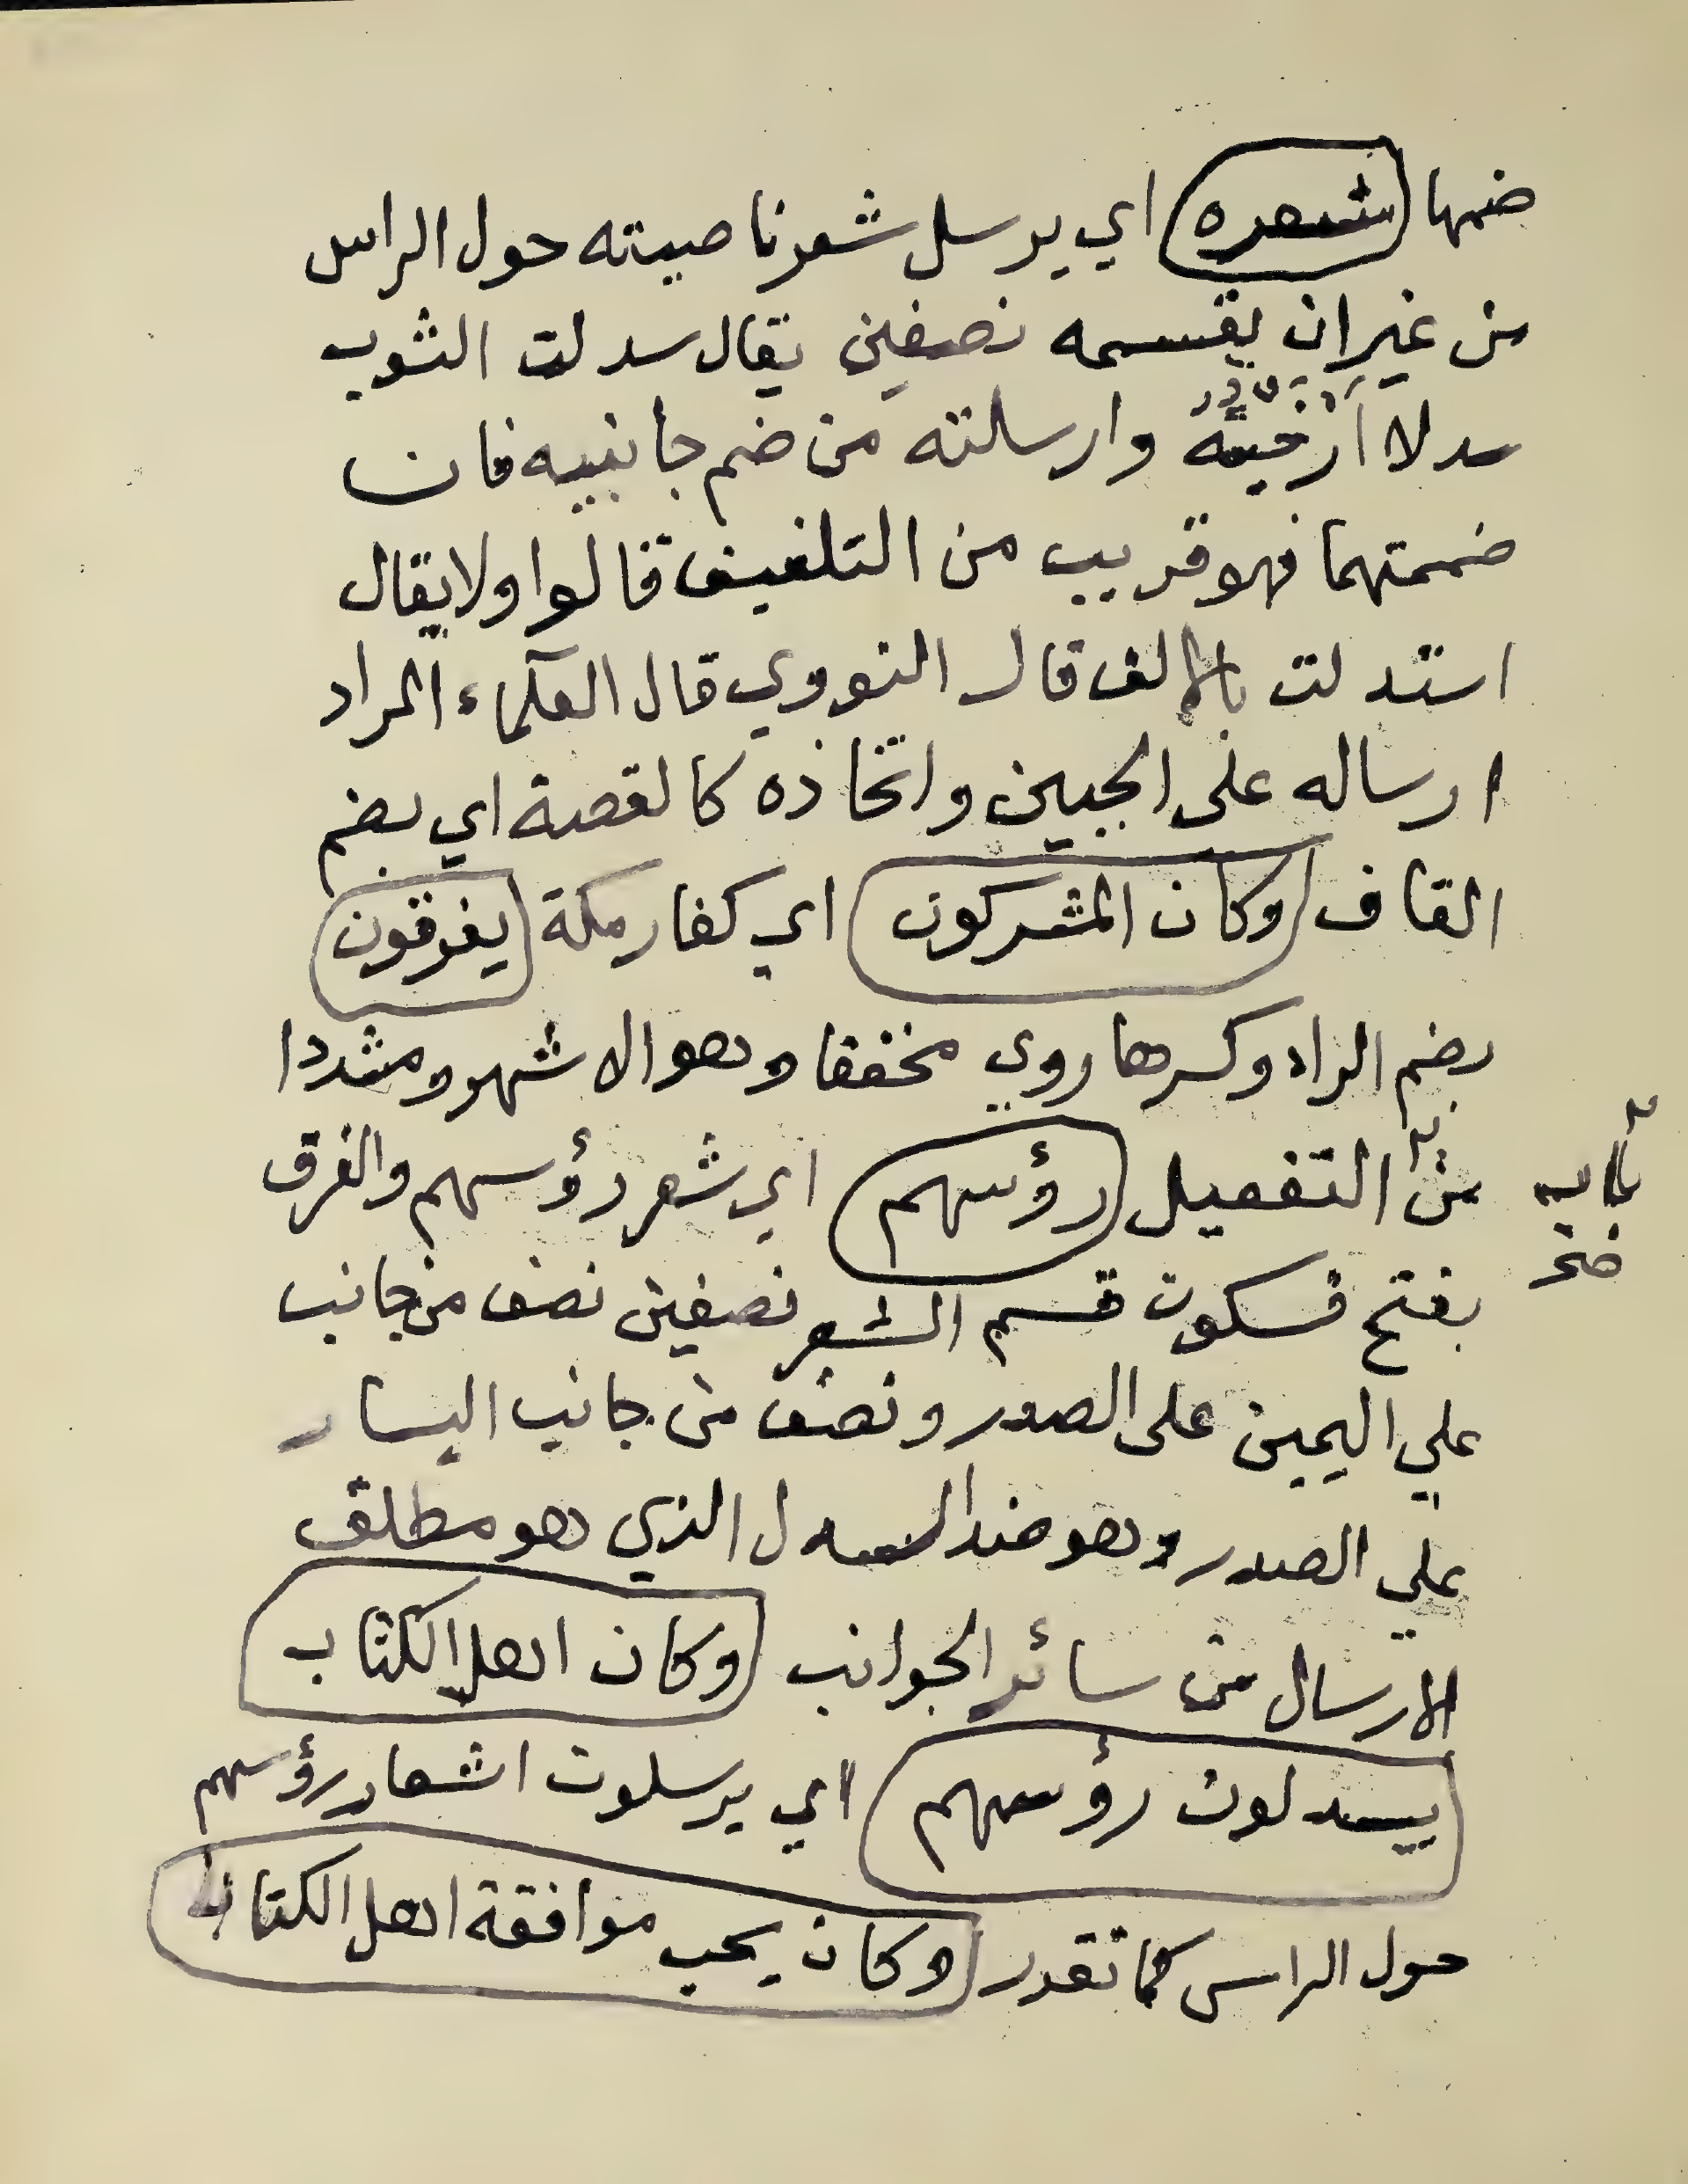 ضمها شعره اي يرسل شعر ناصيته حول الراس
من غير ان يقسمه نصفين يقال سدلت الثوب
سدلا ارخيته وارسلته من ضم جانبيه فان
ضممتهما فهو قريب من التلفيف قالوا ولا يقال
استدلت بالالف قال النووي قال العلماء المراد
ارساله على الجبين واتخاذه كالقصة اي بضم
القاف وكان المشركون اي كفار مكة يفرقون
بضم الراء وكسرها روي مخففا وهو الاشهر ومشددا
من التفعيل رؤسهم اي شعر رؤسهم والفرق
بفتح فسكون قسم الشعر نصفين نصف من جانب
علي اليمين على الصدر ونصف من جانب اليسار
علي الصدر وهو ضد السدل الذي هو مطلق
الارسال من سائر الجوانب وكان اهل الكتاب
يسدلون رؤسهم اي يرسلون اشعار رؤسهم
حول الراس كما تقدر وكان يحب موافقة اهل الكتاب